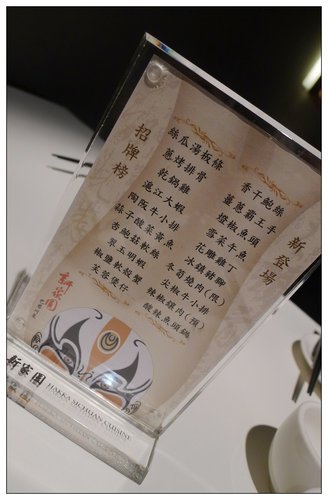 新登場
香干鮑絲
薑蔥霸王手
燈椒魚頭
雪菜牛魚
花雕雞丁
冰鎮豬腳
冬筍燒肉(限)
尖椒牛小排
辣椒螺肉(限)
酸辣魚頭鍋
招牌榜
絲瓜湯板條
蔥烤排骨
乾鍋雞
溫江大蝦
陶阪牛小排
蒜子酸菜黃魚
杏鮑菇軟絲
翠玉明蝦
椒鹽軟殼蟹
芙蓉煲仔
新家園
HAKKA SICHUAN CUISINE